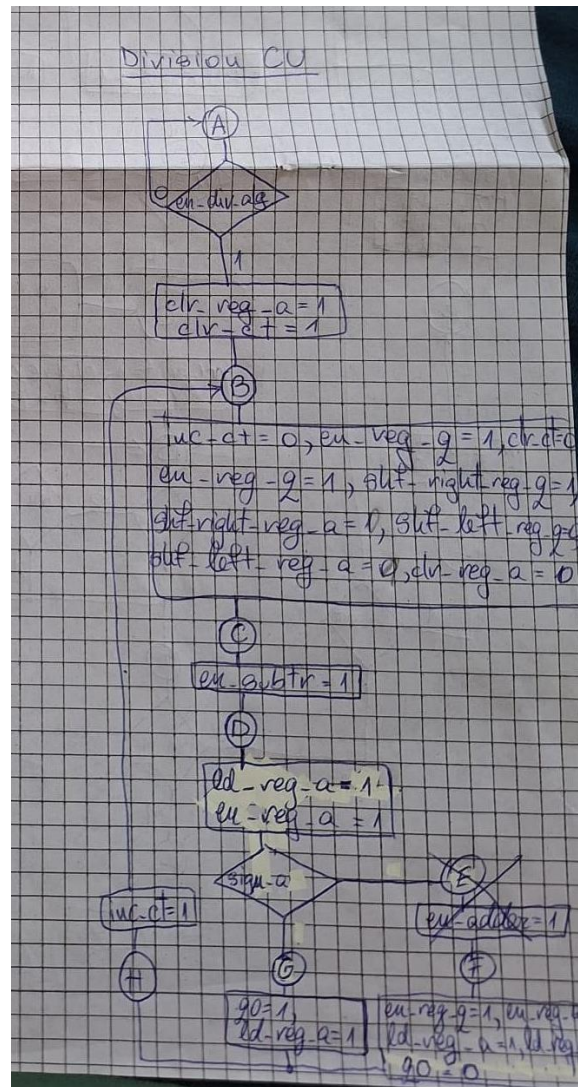 Division CU
A
0 en-div-ag
1
clr-reg-a=1
clr-ct=1
B
inc-ct=0, en-reg-q=1, clr-ct=0
en-reg-q=1, shf-right-reg-q=1
shf-right-reg-a=0, shf-left-reg-q=0
shf-left-reg-a=0, clr-reg-a=0
C
en-subtr=1
D
ld-reg-a=1
en-reg-a=1
sign-a
E
inc-ct=1
en-adder=1
H
G
F
q0=1,
ld-reg-a=1
en-reg-q=1, en-reg-
ld-reg-a=1, ld-reg
q0=0